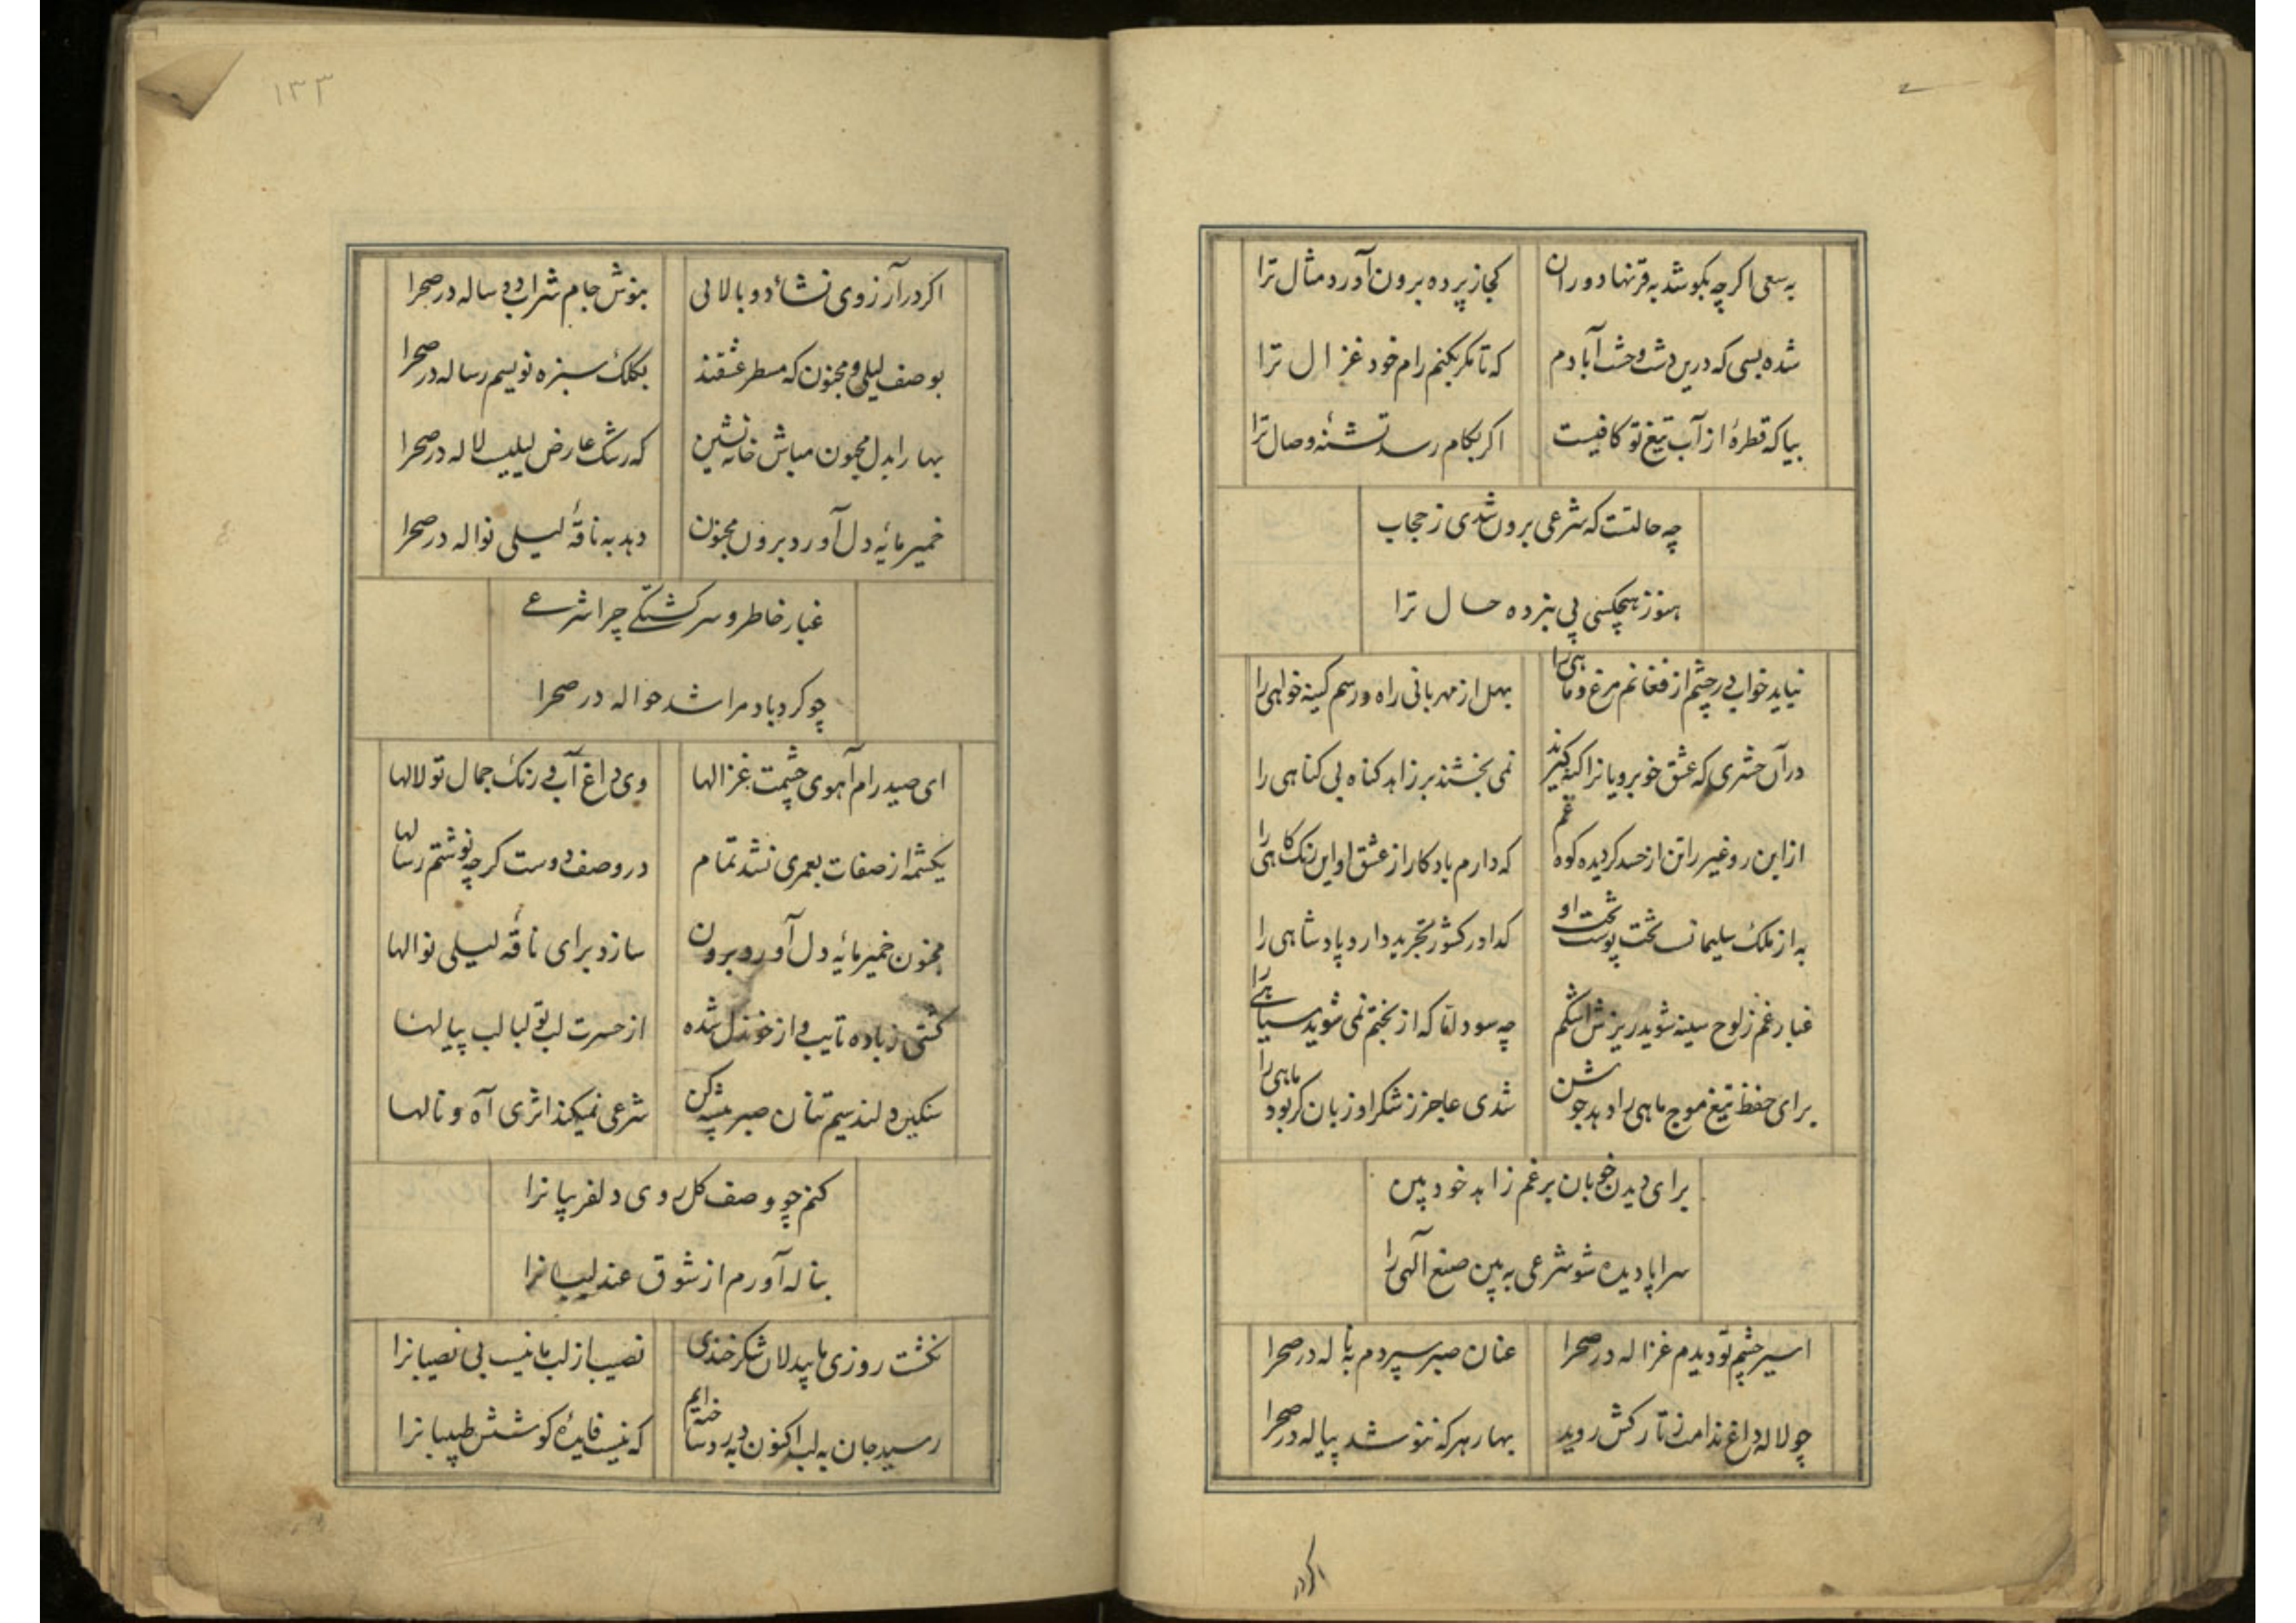 به سعی اگر چه بکوشد به قرنها دوران
کجا ز پرده برون آورد مثال ترا
شده بسی که درین دشت وحشت آبادم
که تا مگر بکنم رام خود غزال ترا
بیا که قطرهٔ از آب تیغ تو کافیست
اگر بکام رسد تشنهٔ وصال ترا
چه حالتست که شرعی برون شدی ز حجاب
هنوز هیچکسی پی نبرده حال ترا
نیاید خواب در چشم از فغانم مرغ و ماهی را
بهل از مهربانی راه و رسم کینه خواهی را
در آن حشری که عشق خوبرویانرا گنه گیرند
نمی بخشند بر زاهد گناه بی گناهی را
از این رو غیر را تن از حسد گردیده کوه غم
که دارم یادکار از عشق او این رنک کاهی را
به از ملک سلیمانست تخت پوست تخت او
گدا در کشور تجرید دارد پادشاهی را
غبار غم ز لوح سینه شوید ریزش اشکم
چه سود اما که از بختم نمی شوید سیاهی را
برای حفظ تیغ موج ماهی را دهد جوشن
شدی عاجز ز شکر او زبان گر بود ماهی را
برای دیدن خوبان برغم زاهد خود بین
سراپا دیده شو شرعی به بین صنع آلهی را
اسیر چشم تو دیدم غزاله در صحرا
عنان صبر سپردم به ناله در صحرا
چو لاله داغ ندامت ز تارکش روید
بهار هر که ننوشد پیاله در صحرا
اگر در
۱۳۳
اگر در آرزوی نشاٴ دو بالائی
بنوش جام شراب دو ساله در صحرا
بوصف لیلی و مجنون که مسطر عشقند
بکلک سبزه نویسم رساله در صحرا
بهار ایدل مجنون مباش خانه نشین
که رشک عارض لیلیست لاله در صحرا
خمیرمایهٔ دل آورد برون مجنون
دهد به ناقهٔ لیلی نواله در صحرا
غبار خاطر و سرگشتگی چرا شرعی
چو گردباد مرا شد حواله در صحرا
ای صید رام آهوی چشمت غزالها
وی داغ آب و رنک جمال تو لالها
یکشمه از صفات بعمری نشد تمام
در وصف دوست گر چه نوشتم رسالها
مجنون خمیرمایهٔ دل آورد برون
سازد برای ناقه لیلی نوالها
گشتی ز باده تایب و از خوندل شده
از حسرت لب تو لبالب پیالها
سنگین دلند سیم تنان صبر پیشه کن
شرعی نمیکند اثری آه و نالها
کنم چو وصف گل روی دلفریبانرا
بناله آورم از شوق عندلیبانرا
نگشت روزی ما بیدلان شکرخندی
نصیب از لب ما نیست بی نصیبانرا
رسید جان به لب اکنون به درد ساخته ایم
که نیست فایدهٔ کوشش طبیبانرا